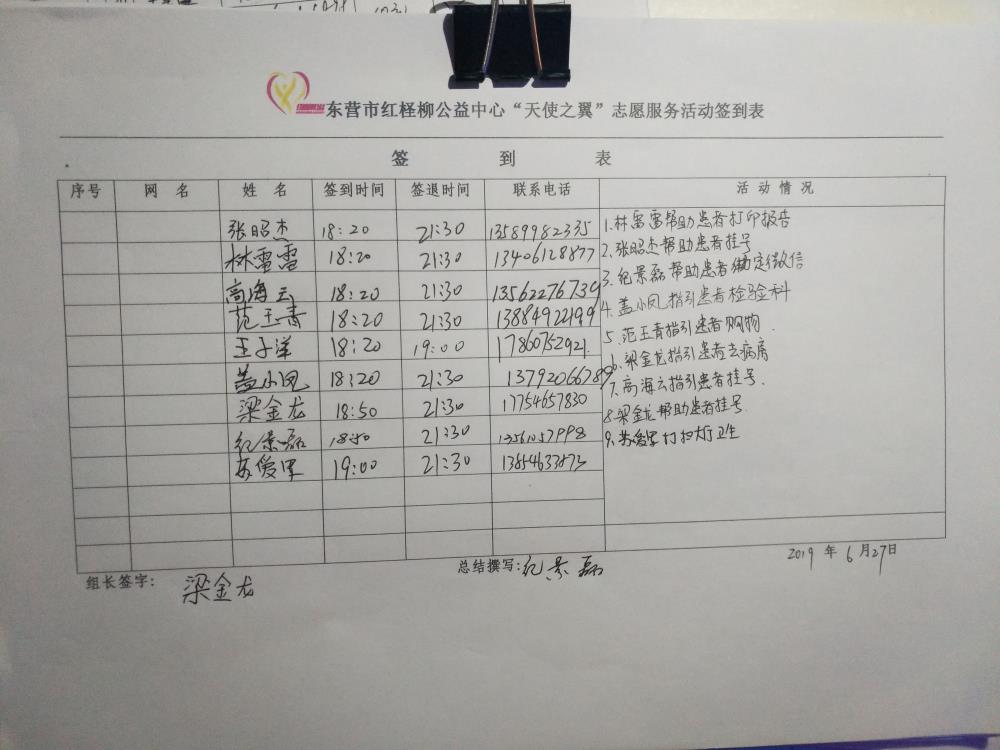 东营市红柽柳公益中心“天使之翼”志愿服务活动签到表
签 到 表
序号 网 名 姓 名 签到时间 签退时间 联系电话 活 动 情 况
张昭杰 18:20 21:30 13589982335
林雷雷 18:20 21:30 13406128877
高海云 18:20 21:30 13562276739
范玉青 18:20 21:30 13884922199
王子洋 18:20 19:00 17860752921
盖小凤 18:20 21:30 13792066789
梁金龙 18:50 21:30 17754657830
纪景磊 18:50 21:30 13561057998
苏爱军 19:00 21:30 13854633873
1.林雷雷帮助患者打印报告
2.张昭杰帮助患者挂号
3.纪景磊帮助患者绑定微信
4.盖小凤指引患者检验科
5.范玉青指引患者购物
6.梁金龙指引患者去病房
7.高海云指引患者挂号.
8.梁金龙帮助患者挂号
9.苏爱军打扫大厅卫生
组长签字: 梁金龙
总结撰写:纪景磊
2019 年 6 月27日